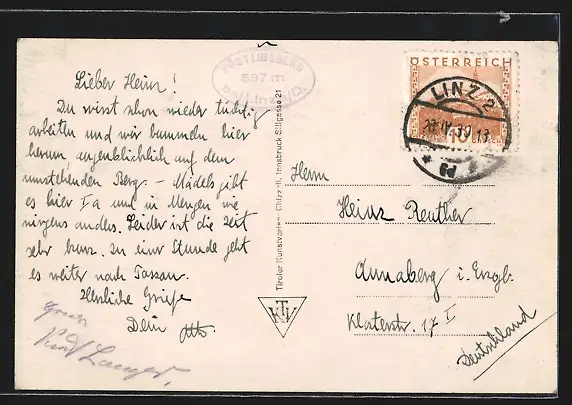 PÖSTLINGBERG
537 m
bei Linz a/D.
Lieber Heinz!
Du wirst schon wieder tüchtig
arbeiten und wir bummeln hier
herum, augenblicklich auf dem
umstehenden Berg. – Mädels gibt
es hier Ia und in Mengen wie
nirgens anders. Leider ist die Zeit
sehr kurz. In einer Stunde geht
es weiter nach Passau.
Herzliche Grüße
Dein Otto.
Gruss
Langer,
Tiroler Kunstverlag Chizzali, Innsbruck, Sillgasse 21
KTV
ÖSTERREICH
10
LINZ 2
Herrn
Heinz Reuther
Annaberg i. Erzgb.
Klosterstr. 17 I
Deutschland